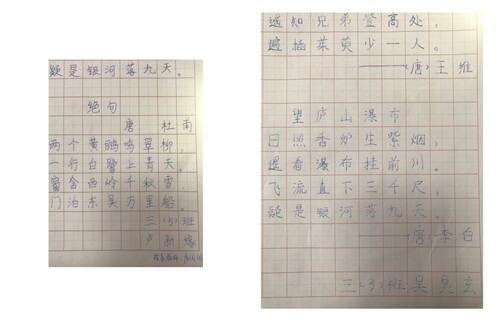 疑是银河落九天。
绝句
唐 杜甫
两个黄鹂鸣翠柳,
一行白鹭上青天。
窗含西岭千秋雪,
门泊东吴万里船。
三班
卢新
遥知兄弟登高处,
遍插茱萸少一人。
——(唐)王维
望庐山瀑布
日照香炉生紫烟,
遥看瀑布挂前川。
飞流直下三千尺,
疑是银河落九天。
——(唐)李白
三(3)班吴昊玄